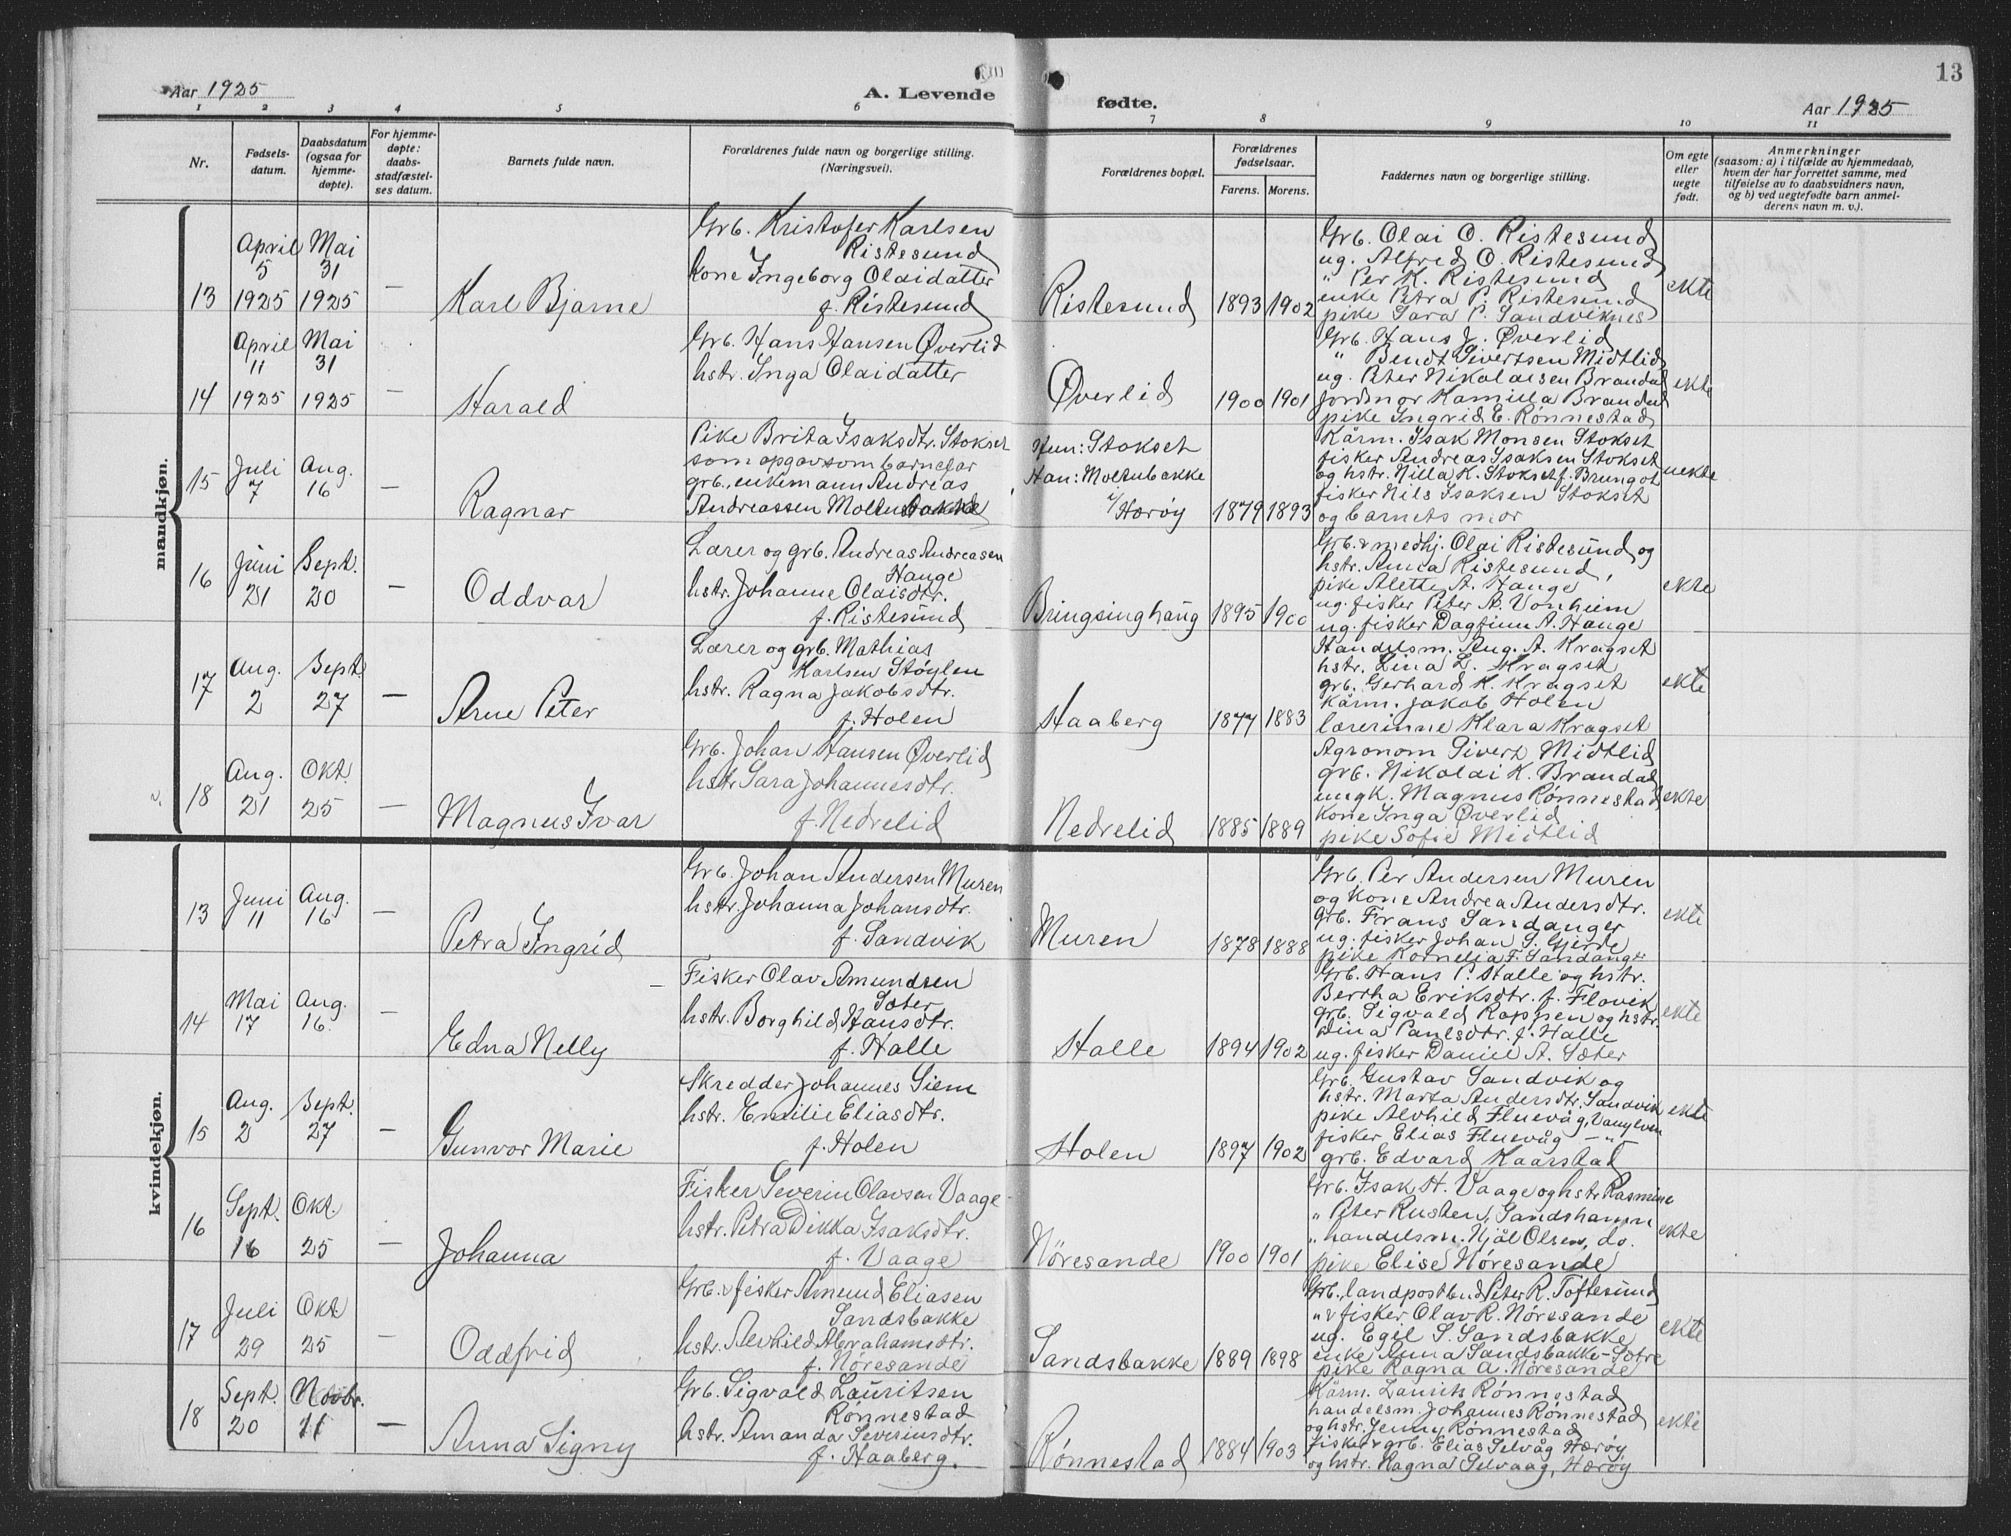 Aar 1925
A. Levende
fødte.
Aar 1925
13
1 2 3 4 5 6 7 8 9 10 11
Nr.
Fødsels-
datum.
Daabsdatum
(ogsaa for
hjemme-
døpte).
For hjemme-
døpte:
daabs-
stadfæstel-
ses datum.
Barnets fulde navn.
Forældrenes fulde navn og borgerlige stilling.
(Næringsvei).
Forældrenes bopæl.
Forældrenes
fødselsaar.
Farens. Morens.
Faddernes navn og borgerlige stilling.
Om egte
eller
uegte
født.
Anmerkninger
(saasom: a) i tilfælde av hjemmedaab,
hvem der har forrettet samme, med
tilføielse av to daabsvidners navn,
og b) ved uegtefødte barn anmel-
derens navn m. v.).
mandkjøn.
13
April
5
1925
Mai
31
1925
—
Karl Bjarne
Grb. Kristofer Karlsen
Ristesund
kone Ingeborg Olaidatter
f. Ristesund
Ristesund
1893 1902
Grb. Olai O. Ristesund
ug. Alfred O. Ristesund
" Per K. Ristesund
enke Petra P. Ristesund
pike Sara P. Sandviknes
ekte
14
April
11
1925
Mai
31
1925
—
Harald
Grb. Hans Hansen Øverlid
hstr. Inga Olaidatter
Øverlid
1900 1901
Grb. Hans J. Øverlid
" Bendt Sivertsen Midtlid
ug. Peter Nikolaisen Brandal
Jordmor Kamilla Brandal
pike Ingrid E. Rønnestad
ekte
15
Juli
7
Aug.
16
—
Ragnar
Pike Brita Isaksdtr. Stokset
som opgav som barnefar
grb., enkemann Andreas
Andreassen Moltubakke
Hun: Stokset
Han: Moltubakke
i/ Herøy
1879 1893
Kårm. Isak Monsen Stokset
fisker Andreas Isaksen Stokset
og hstr. Nilla K. Stokset f. Brungot
fisker Nils Isaksen Stokset
og barnets mor
uekte
16
Juni
21
Sept.
20
—
Oddvar
Lærer og grb. Andreas Andreasen
Hauge
hstr. Johanne Olaisdtr.
f. Ristesund
Bringsinghaug
1895 1900
Grb. & medhj. Olai Ristesund og
hstr. Anna Ristesund,
pike Alette A. Hauge
ug. fisker Peter A. Vonheim
ug. fisker Dagfinn A. Hauge
ekte
17
Aug.
2
Sept.
27
—
Arne Peter
Lærer og grb. Mathias
Karlsen Støylen
hstr. Ragna Jakobsdtr.
f. Holen
Haaberg
1877 1883
Handelsm. Aug. A. Kragset
hstr. Lina L. Kragset
grb. Gerhard K. Kragset
Kårm. Jakob Holen
lærerinne Klara Kragset
ekte
18
Aug.
21
Okt.
25
—
Magnus Ivar
Grb. Johan Hansen Øverlid
hstr. Sara Johannesdtr.
f. Nedrelid
Nedrelid
1885 1889
Agronom Sivert Midtlid
grb. Nikolai K. Brandal
ungk. Magnus Rønnestad
Kone Inga Øverlid
pike Sofie Midtlid
ekte
kvindekjøn.
13
Juni
11
Aug.
16
—
Petra Ingrid
Grb. Johan Andersen Muren
hstr. Johanna Johansdtr.
f. Sandvik
Muren
1878 1888
Grb. Per Andersen Muren
og Kone Andrea Andersdtr.
Grb. Frans Sandanger
ug. fisker Johan S. Gjerde
pike Kornelia F. Sandanger
ekte
14
Mai
17
Aug.
16.
—
Edna Nelly
Fisker Olav Amundsen
Sæter
hstr. Borghild Hansdtr.
f. Halle
Halle
1894 1902
Grb. Hans P. Halle og hstr.
Bertha Eriksdtr. f. Flovik
grb. Sigvald Koppen og hstr.
Dina Paulsdtr. f. Halle
ug. fisker Daniel A. Sæter
ekte
15
Aug.
2
Sept.
27
—
Gunvor Marie
Skredder Johannes Siem
hstr. Emilie Eliasdtr.
f. Holen
Holen
1897 1902
Grb. Gustav Sandvik og
hstr. Marta Andersdtr. Sandvik
pike Alvhild Fluevåg, Vanylven
fisker Elias Fluevåg —"—
grb. Edvard Kaarstad
ekte
16
Sept.
16
Okt.
25
—
Johanna
Fisker Severin Olavsen Vaage
hstr. Petra Dikka Isaksdtr.
f. Vaage
Nøresande
1900 1901
Grb. Isak H. Vaage og hstr. Rasmine
" Peter Rusten, Sandshamn
" handelsm. Njål Olsen, do.
pike Elise Nøresande
ekte
17
Juli
29
Okt.
25
—
Oddfrid
Grb. & fisker Amund Eliasen
Sandsbakke
hstr. Alvhild Abrahamsdtr.
f. Nøresande
Sandsbakke
1889 1898
Grb., landpostbud Peter R. Toftesund
" & fisker Olav R. Nøresande
ug. Egil S. Sandsbakke
enke Anna Sandsbakke-Sætre
pike Ragna A. Nøresande
ekte
18
Sept.
20
Novbr.
11
—
Anna Signy
Grb. Sigvald Lauritsen
Rønnestad
hstr. Amanda Severinsdtr.
f. Haaberg.
Rønnestad
1884 1903
Kårm. Laurits Rønnestad
handelsm. Johannes Rønnestad
og hstr. Jenny Rønnestad
fisker & grb. Elias Selvåg Herøy
og hstr. Ragna Selvaag, Herøy
ekte